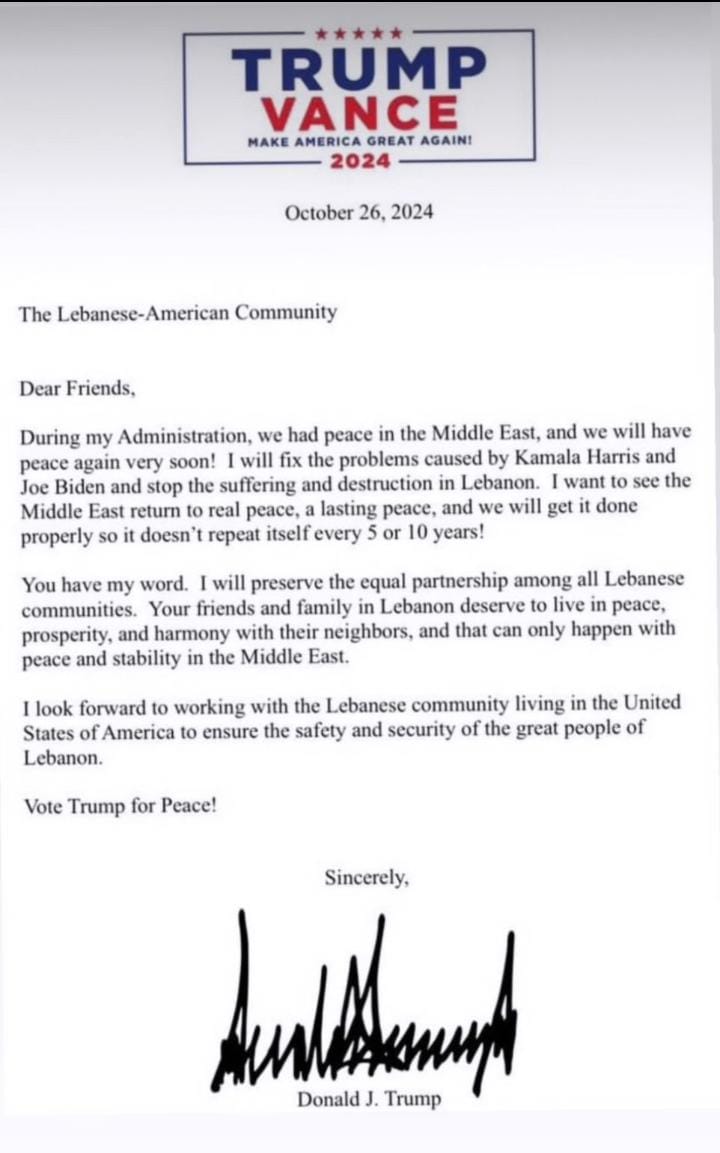 TRUMP
VANCE
MAKE AMERICA GREAT AGAIN!
2024
October 26, 2024
The Lebanese-American Community
Dear Friends,
During my Administration, we had peace in the Middle East, and we will have
peace again very soon!  I will fix the problems caused by Kamala Harris and
Joe Biden and stop the suffering and destruction in Lebanon.  I want to see the
Middle East return to real peace, a lasting peace, and we will get it done
properly so it doesn’t repeat itself every 5 or 10 years!
You have my word.  I will preserve the equal partnership among all Lebanese
communities.  Your friends and family in Lebanon deserve to live in peace,
prosperity, and harmony with their neighbors, and that can only happen with
peace and stability in the Middle East.
I look forward to working with the Lebanese community living in the United
States of America to ensure the safety and security of the great people of
Lebanon.
Vote Trump for Peace!
Sincerely,
Donald J. Trump